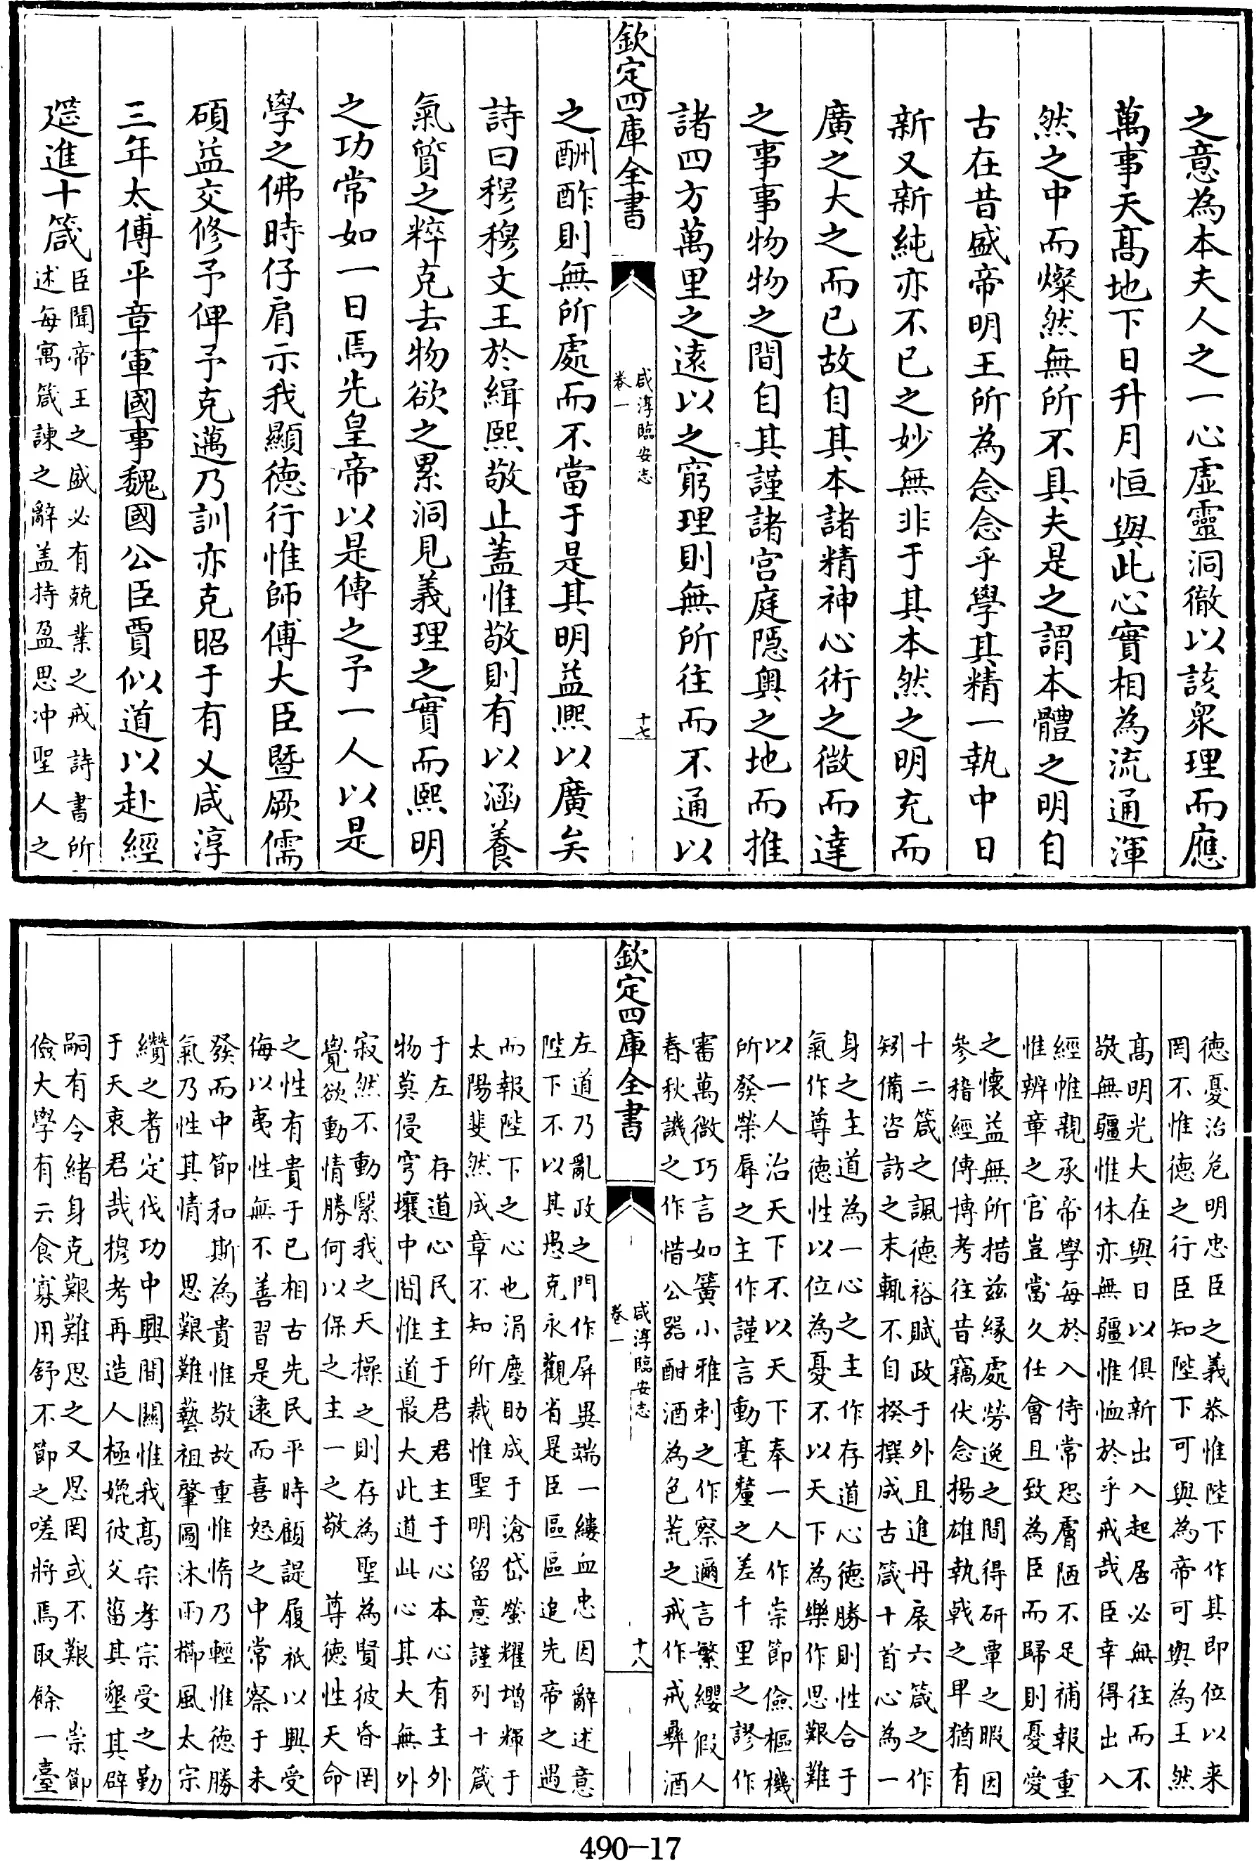 之意為本夫人之一心虛靈洞徹以該衆理而應
萬事天髙地下日升月恒與此心實相為流通渾
然之中而燦然無所不具夫是之謂本體之明自
古在昔盛帝明王所為念念乎學其精一執中日
新又新純亦不已之妙無非于其本然之明充而
廣之大之而已故自其本諸精神心術之微而達
之事事物物之間自其謹諸宫庭隱奥之地而推
諸四方萬里之遠以之窮理則無所往而不通以
欽定四庫全書
咸淳臨安志
卷一
十七
之酬酢則無所處而不當于是其明益熈以廣矣
詩曰穆穆文王於緝熙敬止蓋惟敬則有以涵養
氣質之粹克去物欲之累洞見義理之實而熙明
之功常如一日焉先皇帝以是傳之予一人以是
學之佛時仔肩示我顯德行惟師傅大臣暨厥儒
碩益交修予俾予克邁乃訓亦克昭于有乂咸淳
三年太傅平章軍國事魏國公臣賈似道以赴經
筵進十箴
臣聞帝王之盛必有兢業之戒詩書所
述每寓箴諫之辭盖持盈思冲聖人之
德憂治危明忠臣之義恭惟陛下作其即位以来
罔不惟德之行臣知陛下可與為帝可與為王然
髙明光大在與日以俱新出入起居必無往而不
敬無疆惟休亦無疆惟恤於乎戒哉臣幸得出入
經帷親承帝學每於入侍常恐膚陋不足補報重
惟辨章之官豈當久仕會且致為臣而歸則憂愛
之懷益無所措兹緣處勞逸之間得研覃之暇因
參稽經傳博考往昔竊伏念揚雄執戟之甲猶有
十二箴之諷德裕賦政于外且進丹扆六箴之作
矧備咨訪之末輒不自揆撰成古箴十首心為一
身之主道為一心之主作存道心德勝則性合于
氣作尊德性以位為憂不以天下為樂作思艱難
以一人治天下不以天下奉一人作崇節儉樞機
所發榮辱之主作謹言動毫釐之差千里之謬作
審萬微巧言如簧小雅刺之作察邇言繁纓假人
春秋譏之作惜公器酣酒為色荒之戒作戒彞酒
欽定四庫全書
咸淳臨安志
卷一
十八
左道乃亂政之門作屏異端一縷血忠因辭述意
陛下不以其愚克永觀省是臣區區追先帝之遇
而報陛下之心也涓塵助成于滄岱螢耀增輝于
太陽斐然成章不知所裁惟聖明留意謹列十箴
于左 存道心民主于君君主于心本心有主外
物莫侵穹壤中間惟道最大此道此心其大無外
寂然不動繄我之天操之則存為聖為賢彼昏罔
覺欲動情勝何以保之主一之敬 尊德性天命
之性有貴于已相古先民平時顧諟履祇以興受
侮以夷性無不善習是逺而喜怒之中常察于未
發而中節和斯為貴惟敬故重惟惰乃輕惟德勝
氣乃性其情 思艱難藝祖肇圖沐雨櫛風太宗
纘之耆定伐功中興間關惟我髙宗孝宗受之勤
于天衷君哉穆考再造人極媲彼父菑其墾其辟
嗣有令緒身克艱難思之又思罔或不艱 崇節
儉大學有云食寡用舒不節之嗟將焉取餘一臺
490-17